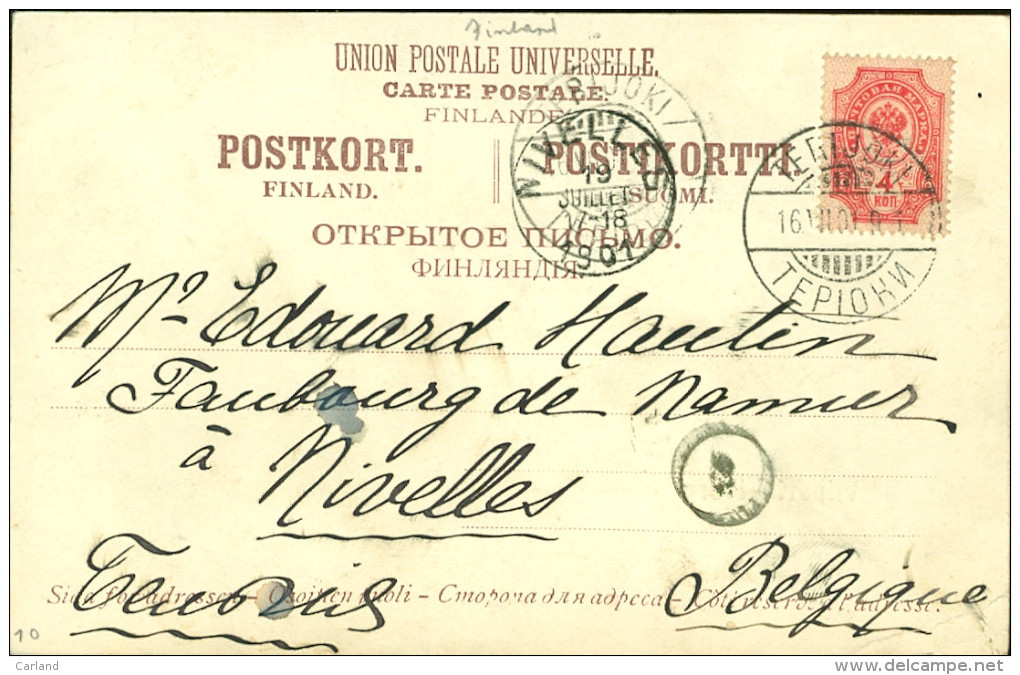 Finland
UNION POSTALE UNIVERSELLE.
CARTE POSTALE.
FINLANDE
POSTKORT. POSTIKORTTI.
FINLAND. SUOMI.
ОТКРЫТОЕ ПИСЬМО.
ФИНЛЯНДІЯ.
NIVELLES
19
JUILLET
1901
TERIJOKI
ПОЧТОВАЯ МАРКА
4
КОП
TERIJOKI
16.VII.01
ТЕРІОКИ
Mr Edouard Hautin
Faubourg de Namur
à
Nivelles
Belgique
Sida för adressen - Osoitteen puoli - Сторона для адреса - Côté réservé à l'adresse.
10
Carland
http://www.delcampe.net